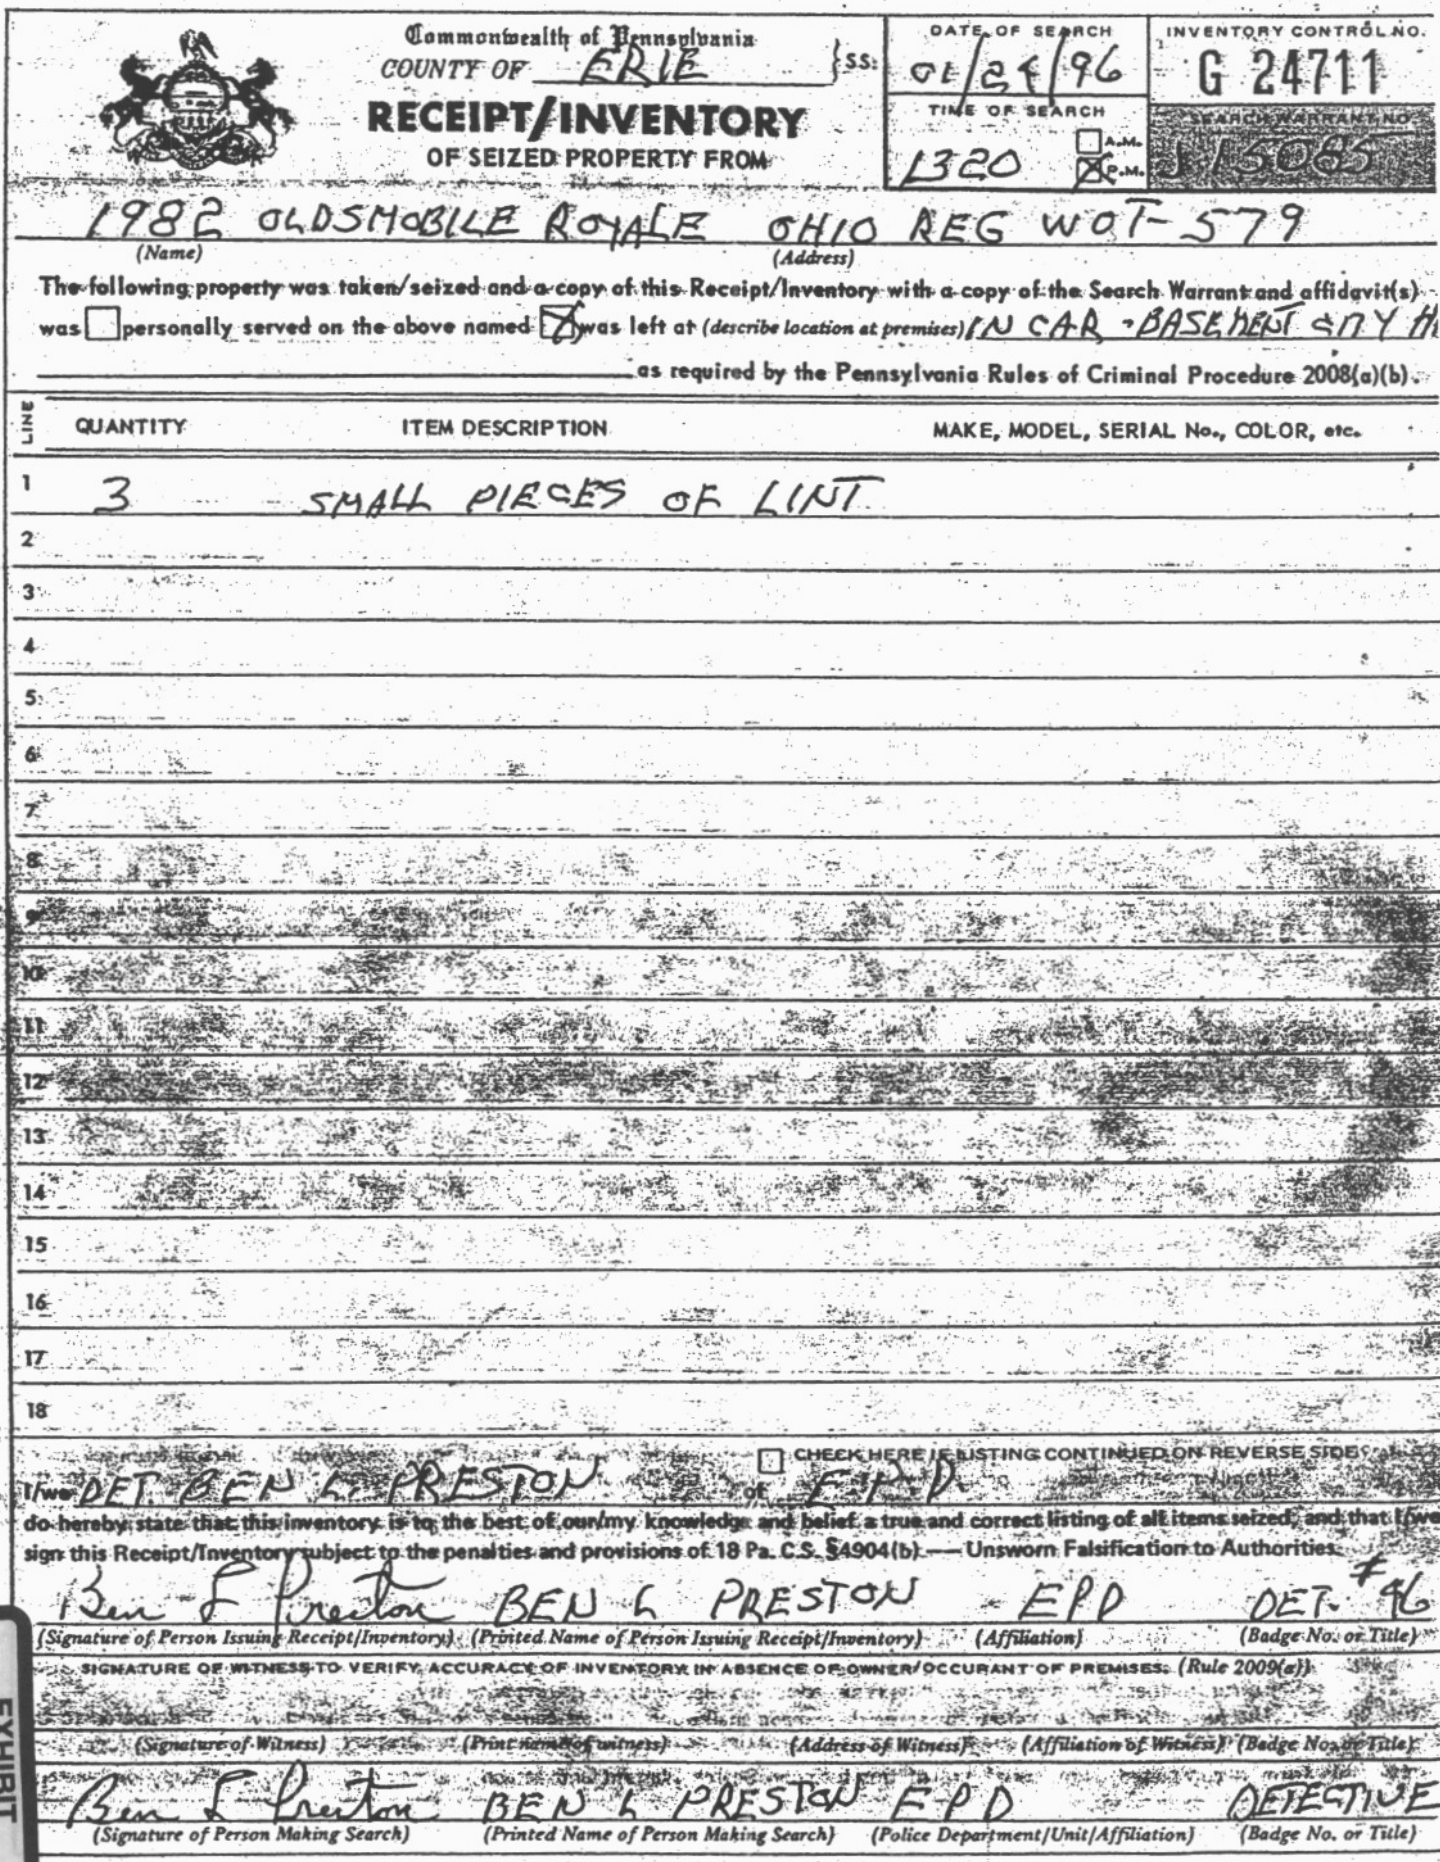 Commonwealth of Pennsylvania
COUNTY OF ERIE } SS:
RECEIPT/INVENTORY
OF SEIZED PROPERTY FROM
DATE OF SEARCH
01/24/96
TIME OF SEARCH
1320 A.M. P.M.
INVENTORY CONTROL NO.
G 24711
SEARCH WARRANT NO.
J 15085
1982 OLDSMOBILE ROYALE OHIO REG WOT-579
(Name) (Address)
The following property was taken/seized and a copy of this Receipt/Inventory with a copy of the Search Warrant and affidavit(s)
was personally served on the above named was left at (describe location at premises) IN CAR - BASEMENT
as required by the Pennsylvania Rules of Criminal Procedure 2008(a)(b).
LINE QUANTITY ITEM DESCRIPTION MAKE, MODEL, SERIAL No., COLOR, etc.
1 3 SMALL PIECES OF LINT
2
3
4
5
6
7
8
9
10
11
12
13
14
15
16
17
18
CHECK HERE IF LISTING CONTINUED ON REVERSE SIDE
I/we DET. BEN L. PRESTON of E.P.D.
do hereby state that this inventory is to the best of our/my knowledge and belief a true and correct listing of all items seized, and that I/we
sign this Receipt/Inventory subject to the penalties and provisions of 18 Pa. C.S. §4904(b) — Unsworn Falsification to Authorities.
Ben L Preston BEN L PRESTON EPD DET. #96
(Signature of Person Issuing Receipt/Inventory) (Printed Name of Person Issuing Receipt/Inventory) (Affiliation) (Badge No. or Title)
SIGNATURE OF WITNESS TO VERIFY ACCURACY OF INVENTORY IN ABSENCE OF OWNER/OCCURANT OF PREMISES. (Rule 2009(a))
(Signature of Witness) (Print name of witness) (Address of Witness) (Affiliation of Witness) (Badge No. or Title)
Ben L Preston BEN L PRESTON EPD DETECTIVE
(Signature of Person Making Search) (Printed Name of Person Making Search) (Police Department/Unit/Affiliation) (Badge No. or Title)
EXHIBIT